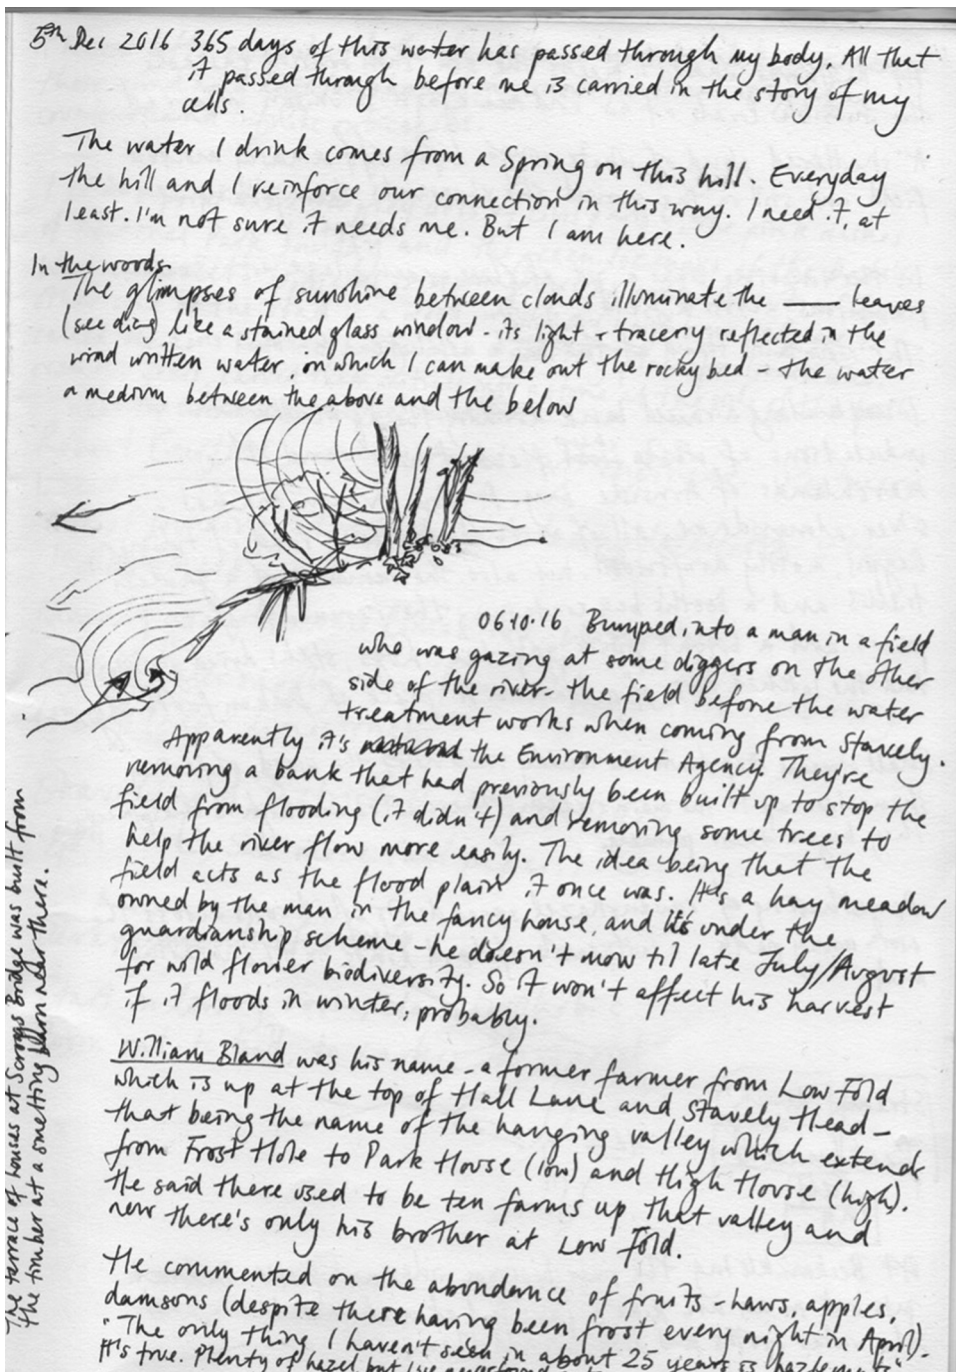 5th Dec 2016 365 days of this water has passed through my body. All that
it passed through before me is carried in the story of my
cells.
The water I drink comes from a Spring on this hill. Everyday
the hill and I reinforce our connection in this way. I need it, at
least. I'm not sure it needs me. But I am here.
In the woods
The glimpses of sunshine between clouds illuminate the ___ leaves
(see diag) like a stained glass window - its light + tracery reflected in the
wind written water, in which I can make out the rocky bed - the water
a medium between the above and the below
06·10·16 Bumped into a man in a field
who was gazing at some diggers on the other
side of the river - the field before the water
treatment works when coming from Stavely.
Apparently it's the Environment Agency. They're
removing a bank that had previously been built up to stop the
field from flooding (it didn't) and removing some trees to
help the river flow more easily. The idea being that the
field acts as the flood plain it once was. It's a hay meadow
owned by the man in the fancy house, and it's under the
guardianship scheme - he doesn't mow til late July/August
for wild flower biodiversity. So it won't affect his harvest
if it floods in winter, probably.
William Bland was his name - a former farmer from Low Fold
which is up at the top of Hall Lane and Stavely Head -
that being the name of the hanging valley which extends
from Frost Hole to Park House (low) and High House (high).
He said there used to be ten farms up that valley and
now there's only his brother at Low Fold.
He commented on the abundance of fruits - haws, apples,
damsons (despite there having been frost every night in April).
"The only thing I haven't seen in about 25 years is
It's true. Plenty of hazel but I've
The terrace of houses at Scroggs Bridge was built from
the timber at a smelting barn near there.